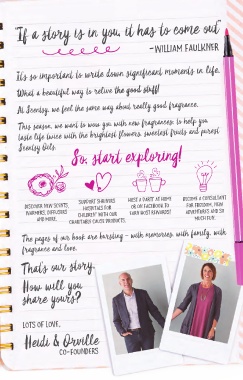 "If a story is in you, it has to come out"
-WILLIAM FAULKNER
It's so important to write down significant moments in life.
What a beautiful way to relive the good stuff!
At Scentsy, we feel the same way about really good fragrance.
This season, we want to wow you with new fragrances to help you
taste life twice with the brightest flowers, sweetest fruits and purest
Scentsy Oils.
So, start exploring!
DISCOVER NEW SCENTS, WARMERS, DIFFUSERS AND MORE.
SUPPORT SHRINERS HOSPITALS FOR CHILDREN WITH OUR CHARITABLE CAUSE PRODUCTS.
HOST A PARTY AT HOME OR ON FACEBOOK TO EARN HOST REWARDS!
BECOME A CONSULTANT FOR FREEDOM, FRIENDS, ADVENTURES AND SO MUCH FUN.
The pages of our book are bursting - with memories, with family, with
fragrance and love.
That's our story.
How will you
share yours?
LOTS OF LOVE,
Heidi & Orville
CO-FOUNDERS